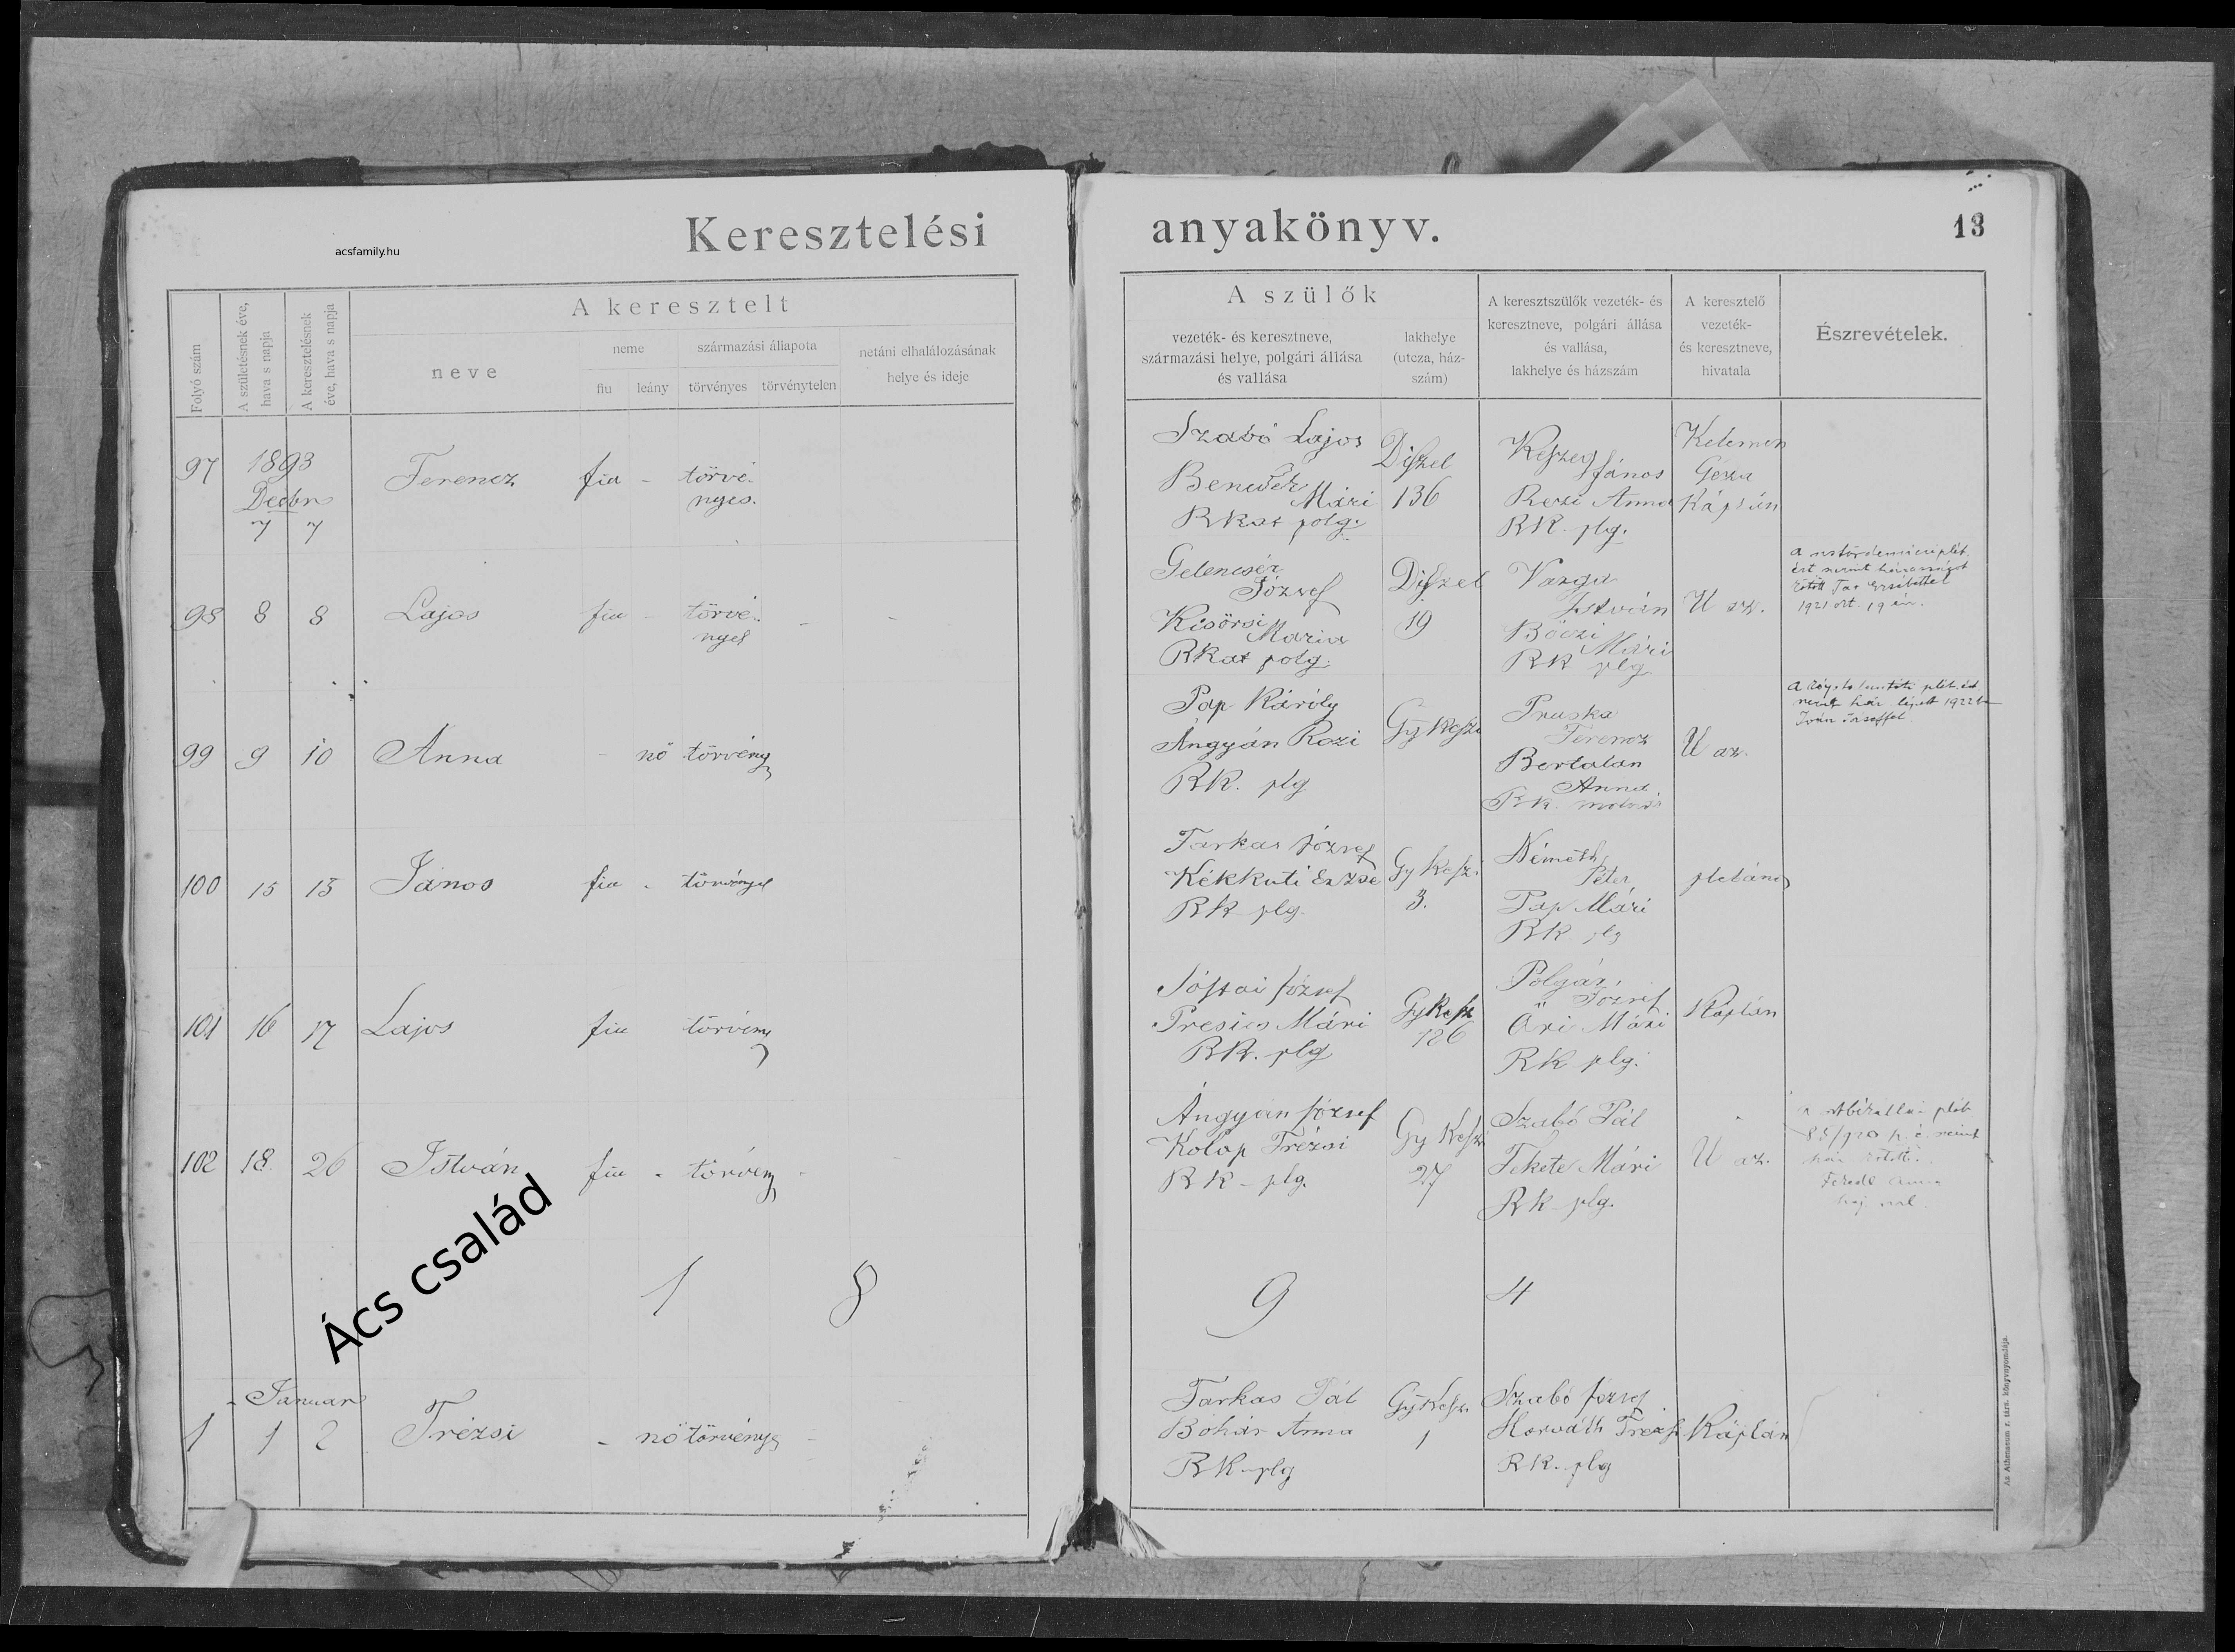 Keresztelési anyakönyv.
13
acsfamily.hu
Folyó szám
A születésnek éve, hava s napja
A keresztelésnek éve, hava s napja
A keresztelt
neve
neme
fiu
leány
származási állapota
törvényes
törvénytelen
netáni elhalálozásának
helye és ideje
A szülők
vezeték- és keresztneve,
származási helye, polgári állása
és vallása
lakhelye
(utcza, ház-
szám)
A keresztszülők vezeték- és
keresztneve, polgári állása
és vallása,
lakhelye és házszám
A keresztelő
vezeték-
és keresztneve,
hivatala
Észrevételek.
97
1893
Decbr
7 7
Ferencz
fiu -
törvé-
nyes.
Szabó Lajos
Benedek
Mári
RKat polg.
Diszel
136
Keszeg
János
Rezi Anna
RK. plg.
Kelemen
Géza
Káplán
98 8 8
Lajos
fiu -
törvé-
nyes
Gelencsér
József
Kisörsi
Mária
RKat polg.
Diszel
19
Varga
István
Böczi
Mári
RK plg.
U az.
1921 okt. 19 én.
99 9 10
Anna
- nö törvény
Pap Károly
Ángyán Rozi
RK. plg
Gy Keszi
Pruska
Ferencz
Bertalan
Anna
U az.
100 15 15
János
fiu - törvényes
Farkas József
Kékkuti Erzse
RK plg.
Gy Keszi
3.
Németh
Péter
Pap Mári
RK plg
plebános
101 16 17
Lajos
fiu törvény
József
Mári
RK. plg
Gy Kesz
126
Polgár
József
Őri Mári
RK plg.
Káplán
102 18. 26
István
fiu - törvény -
Ángyán József
Kolop Trézsi
RK - plg.
Gy Keszi
27
Szabó Pál
Fekete Mári
RK plg.
U az.
Ács család
1 8 9 4
Januar
1 1 2
Trézsi
- nö törvény -
Farkas Pál
Bohár Anna
RK plg
Gy Keszi
1
Szabó József
Horváth Trézsi
RK. plg
Káplán
Az Athenaeum r. társ. könyvnyomdája.